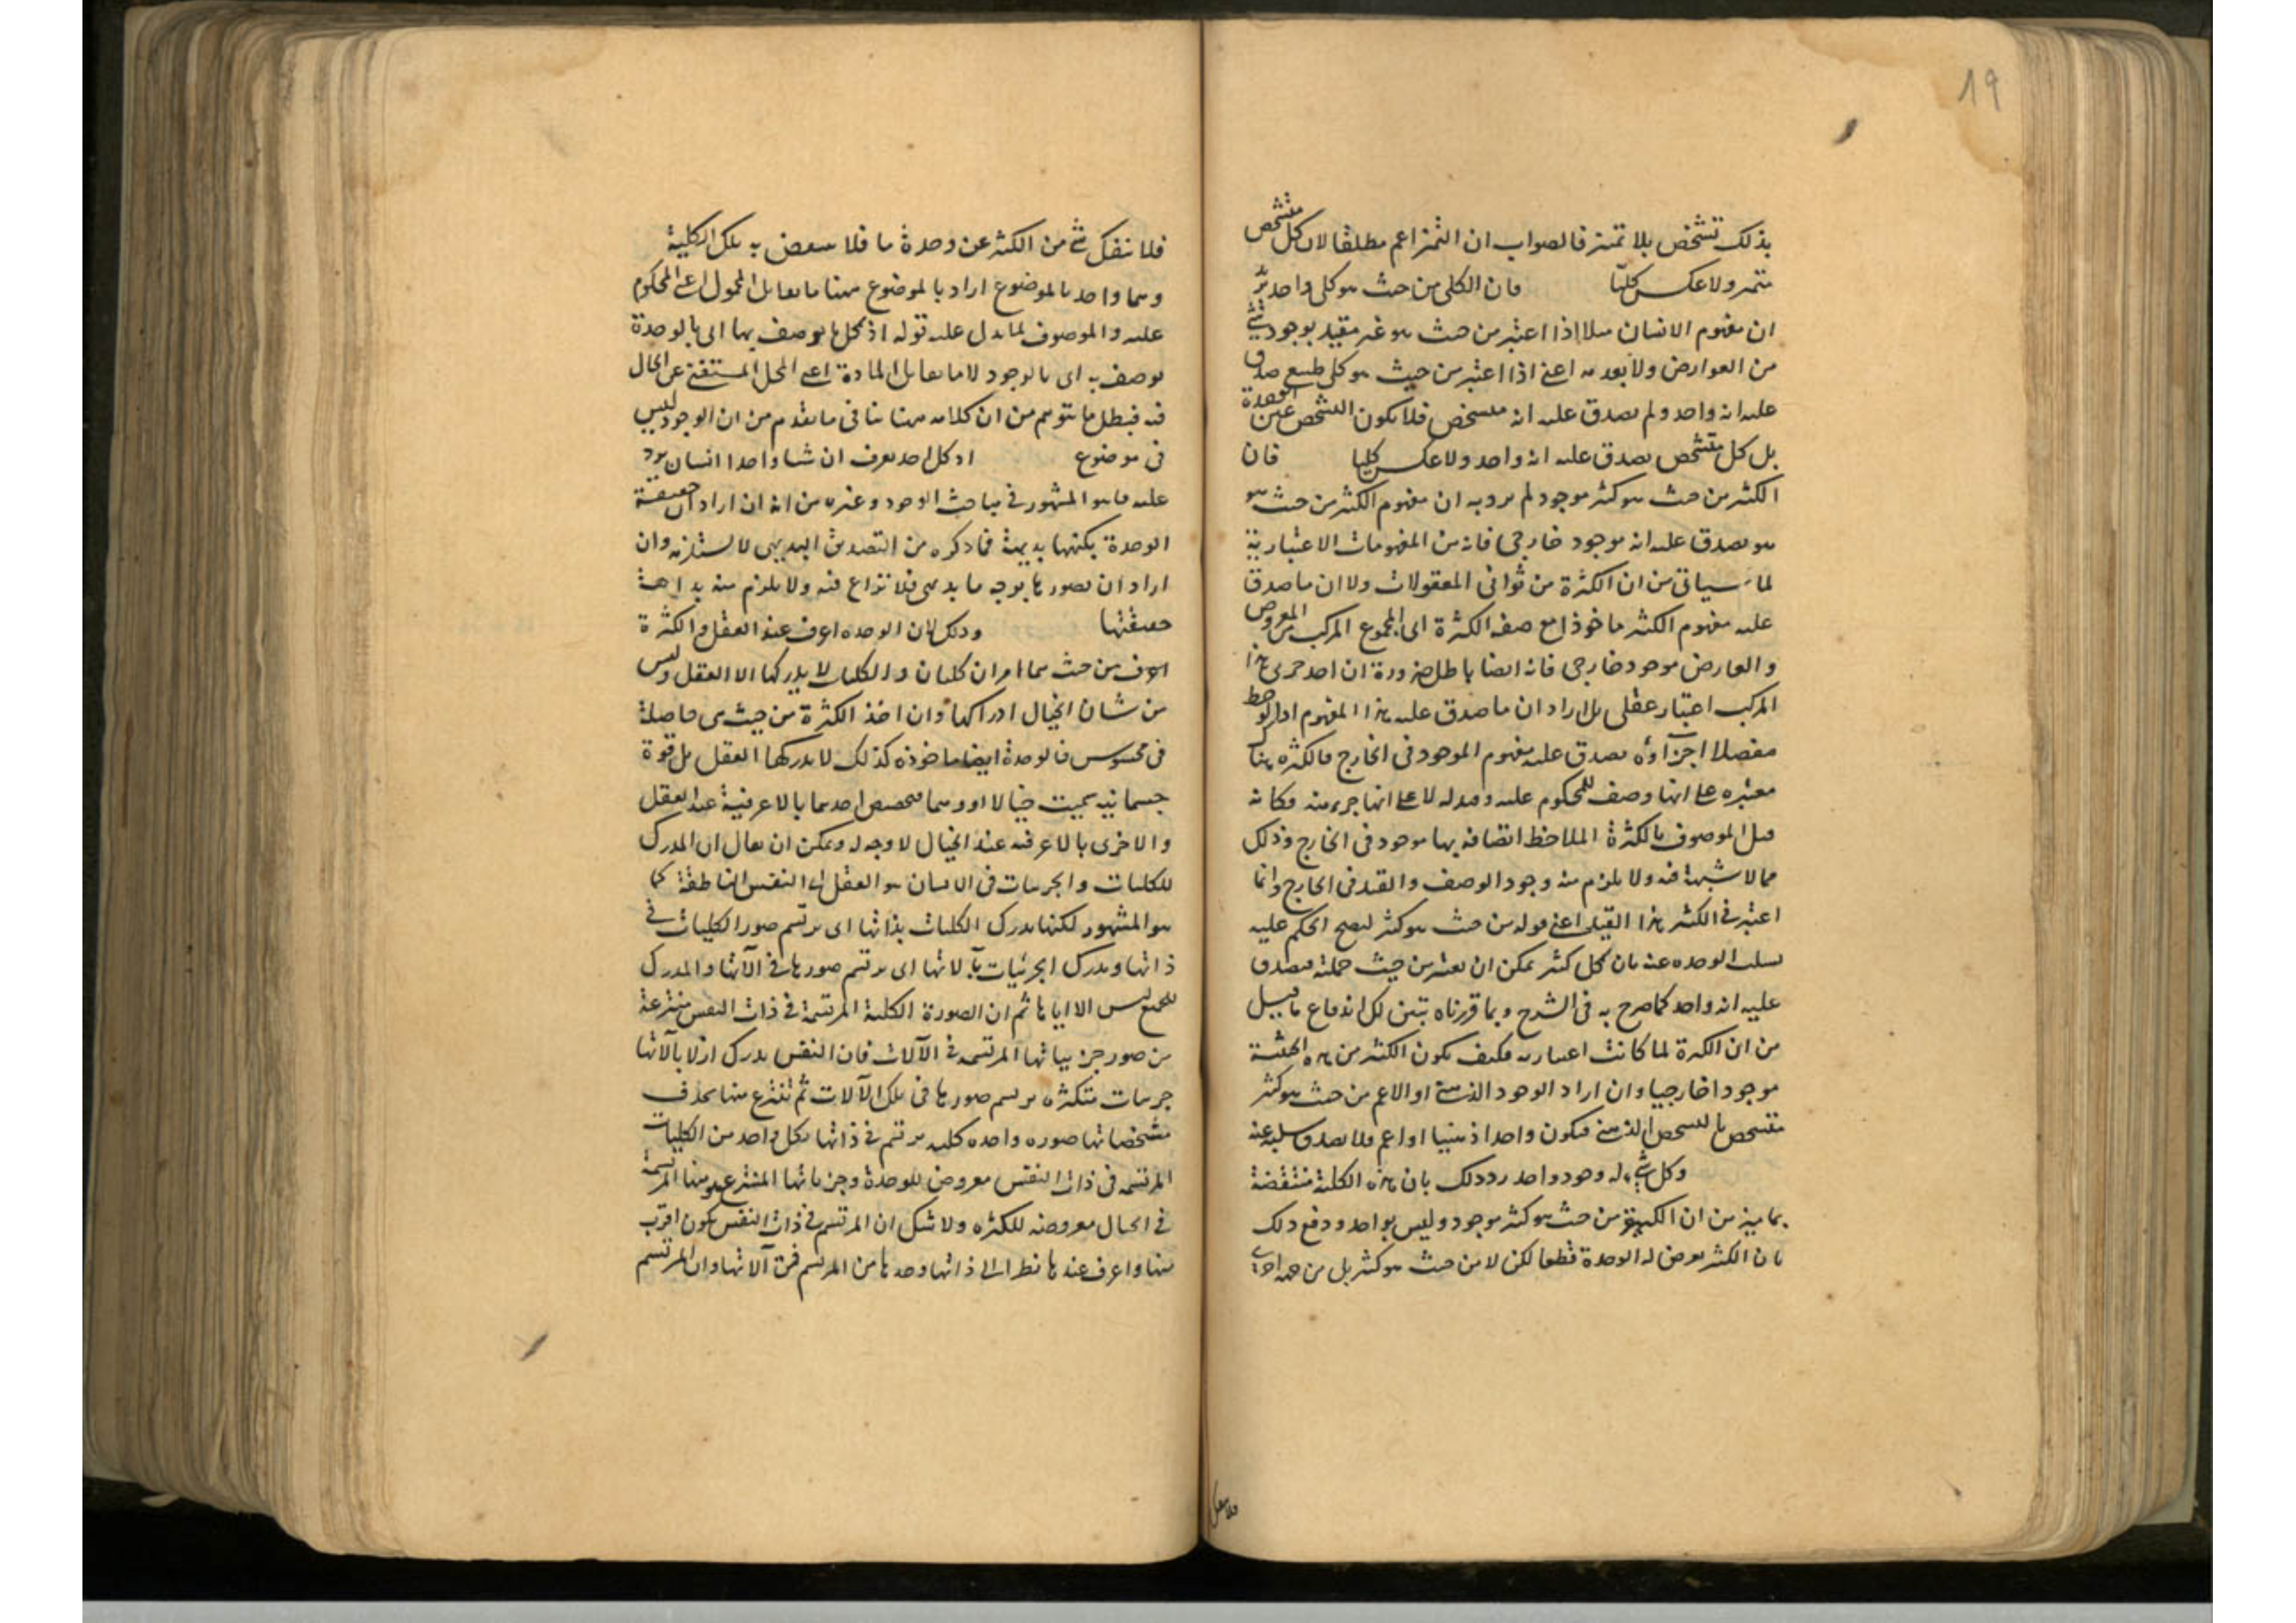 19
بذلك تشخص بلا تميز فالصواب ان التميز اعم مطلقا لان كل متشخص
متميز ولا عكس كليا فان الكلى من حيث هو كلى واحد يريد
ان مفهوم الانسان مثلا اذا اعتبر من حيث هو غير مقيد بوجود شئ
من العوارض ولا بعدمه اعنى اذا اعتبر من حيث هو كلى طبيعى صدق
عليه انه واحد ولم يصدق عليه انه متشخص فلا يكون التشخص عين الوحدة
بل كل متشخص يصدق عليه انه واحد ولا عكس كليا فان
الكثير من حيث هو كثير موجود لم يرد به ان مفهوم الكثير من حيث هو
هو يصدق عليه انه موجود خارجى فانه من المفهومات الاعتبارية
لما سيأتى من ان الكثرة من ثوانى المعقولات ولا ان ما صدق
عليه مفهوم الكثير ماخوذا مع صفة الكثرة اى المجموع المركب من المعروض
والعارض موجود خارجى فانه ايضا باطل ضرورة ان احد جزئى هذا
المركب اعتبار عقلى بل اراد ان ما صدق عليه هذا المفهوم اذا لوحظ
مفصلا اجزاؤه يصدق عليه مفهوم الموجود فى الخارج فالكثرة هنا
معتبره على انها وصف للمحكوم عليه وقيد له لا على انها جزء منه فكانه
قيل الموصوف بالكثرة الملاحظ اتصافه بها موجود فى الخارج وذلك
مما لا شبهة فيه ولا يلزم منه وجود الوصف والقيد فى الخارج وانما
اعتبر فى الكثير هذا القيد اعنى قوله من حيث هو كثير ليصح الحكم عليه
بسلب الوحده عنه فان كل كثير يمكن ان يعتبر من حيث جملته فيصدق
عليه انه واحد كما صرح به فى الشرح وبما قررناه تبين لك اندفاع ما قيل
من ان الكثرة لما كانت اعتباريه فكيف يكون الكثير من هذه الحيثية
موجودا خارجيا وان اراد الوجود الذهنى او الاعم من حيث هو كثير
متشخص بالتشخص الذهنى فيكون واحدا ذهنيا او اعم فلا يصدق سلبه عنه
وكل شئ له وجود واحد رد ذلك بان هذه الكلية منتقضة
بما بينه من ان الكثير من حيث هو كثير موجود وليس بواحد ودفع ذلك
بان الكثير يعرض له الوحدة قطعا لكن لا من حيث هو كثير بل من جهة اخرى
فلا ينفك شئ من الكثير عن وحدة ما فلا ينتقض به تلك الكلية
وهما واحد بالموضوع اراد بالموضوع ههنا ما يقابل المحمول اعنى المحكوم
عليه والموصوف لما يدل عليه قوله اذ كل ما يوصف بها اى بالوحدة
يوصف به اى بالوجود لا ما يقابل المادة اعنى المحل المستغنى عن الحال
فيه فبطل ما يتوهم من ان كلامه ههنا ينافى ما تقدم من ان الوجود ليس
فى موضوع اذ كل احد يعرف ان شيا واحدا انسان يرد
عليه ما هو المشهور فى مباحث الوجود وغيره من انه ان اراد ان حقيقة
الوحدة بكنهها بديهية فما ذكره من التصديق البديهى لا يستلزمه وان
اراد ان تصورها بوجه ما بديهى فلا نزاع فيه ولا يلزم منه بداهة
حقيقتها وذلك لان الوحده اعرف عند العقل والكثرة
اعرف من حيث هما امران كليان والكليات لا يدركها الا العقل وليس
من شان الخيال ادراكها وان اخذ الكثرة من حيث هى حاصلة
فى محسوس فالوحدة ايضا ماخوذه كذلك لا يدركها العقل بل قوة
جسمانيه سميت خيالا او وهما فتخصيص احدهما بالاعرفية عند العقل
والاخرى بالاعرفيه عند الخيال لا وجه له ويمكن ان يقال ان المدرك
للكليات والجزئيات فى الانسان هو العقل اى النفس الناطقة كما
هو المشهور لكنها يدرك الكليات بذاتها اى يرتسم صور الكليات فى
ذاتها ويدرك الجزئيات بآلاتها اى يرتسم صورها فى الآتها والمدرك
للجميع ليس الا اياها ثم ان الصورة الكلية المرتسمة فى ذات النفس منتزعة
من صور جزيياتها المرتسمه فى الآلات فان النفس يدرك اولا بالآتها
جزئيات متكثره يرتسم صورها فى تلك الآلات ثم تنتزع منها بحذف
مشخصاتها صوره واحده كليه يرتسم فى ذاتها فكل واحد من الكليات
المرتسمه فى ذات النفس معروض للوحدة وجزياتها المنتزع هو منها المرتسمة
فى الخيال معروضه للكثره ولا شك ان المرتسم فى ذات النفس يكون اقرب
منها واعرف عندها نظرا الى ذاتها وحدها من المرتسم فى آلاتها وان المرتسم